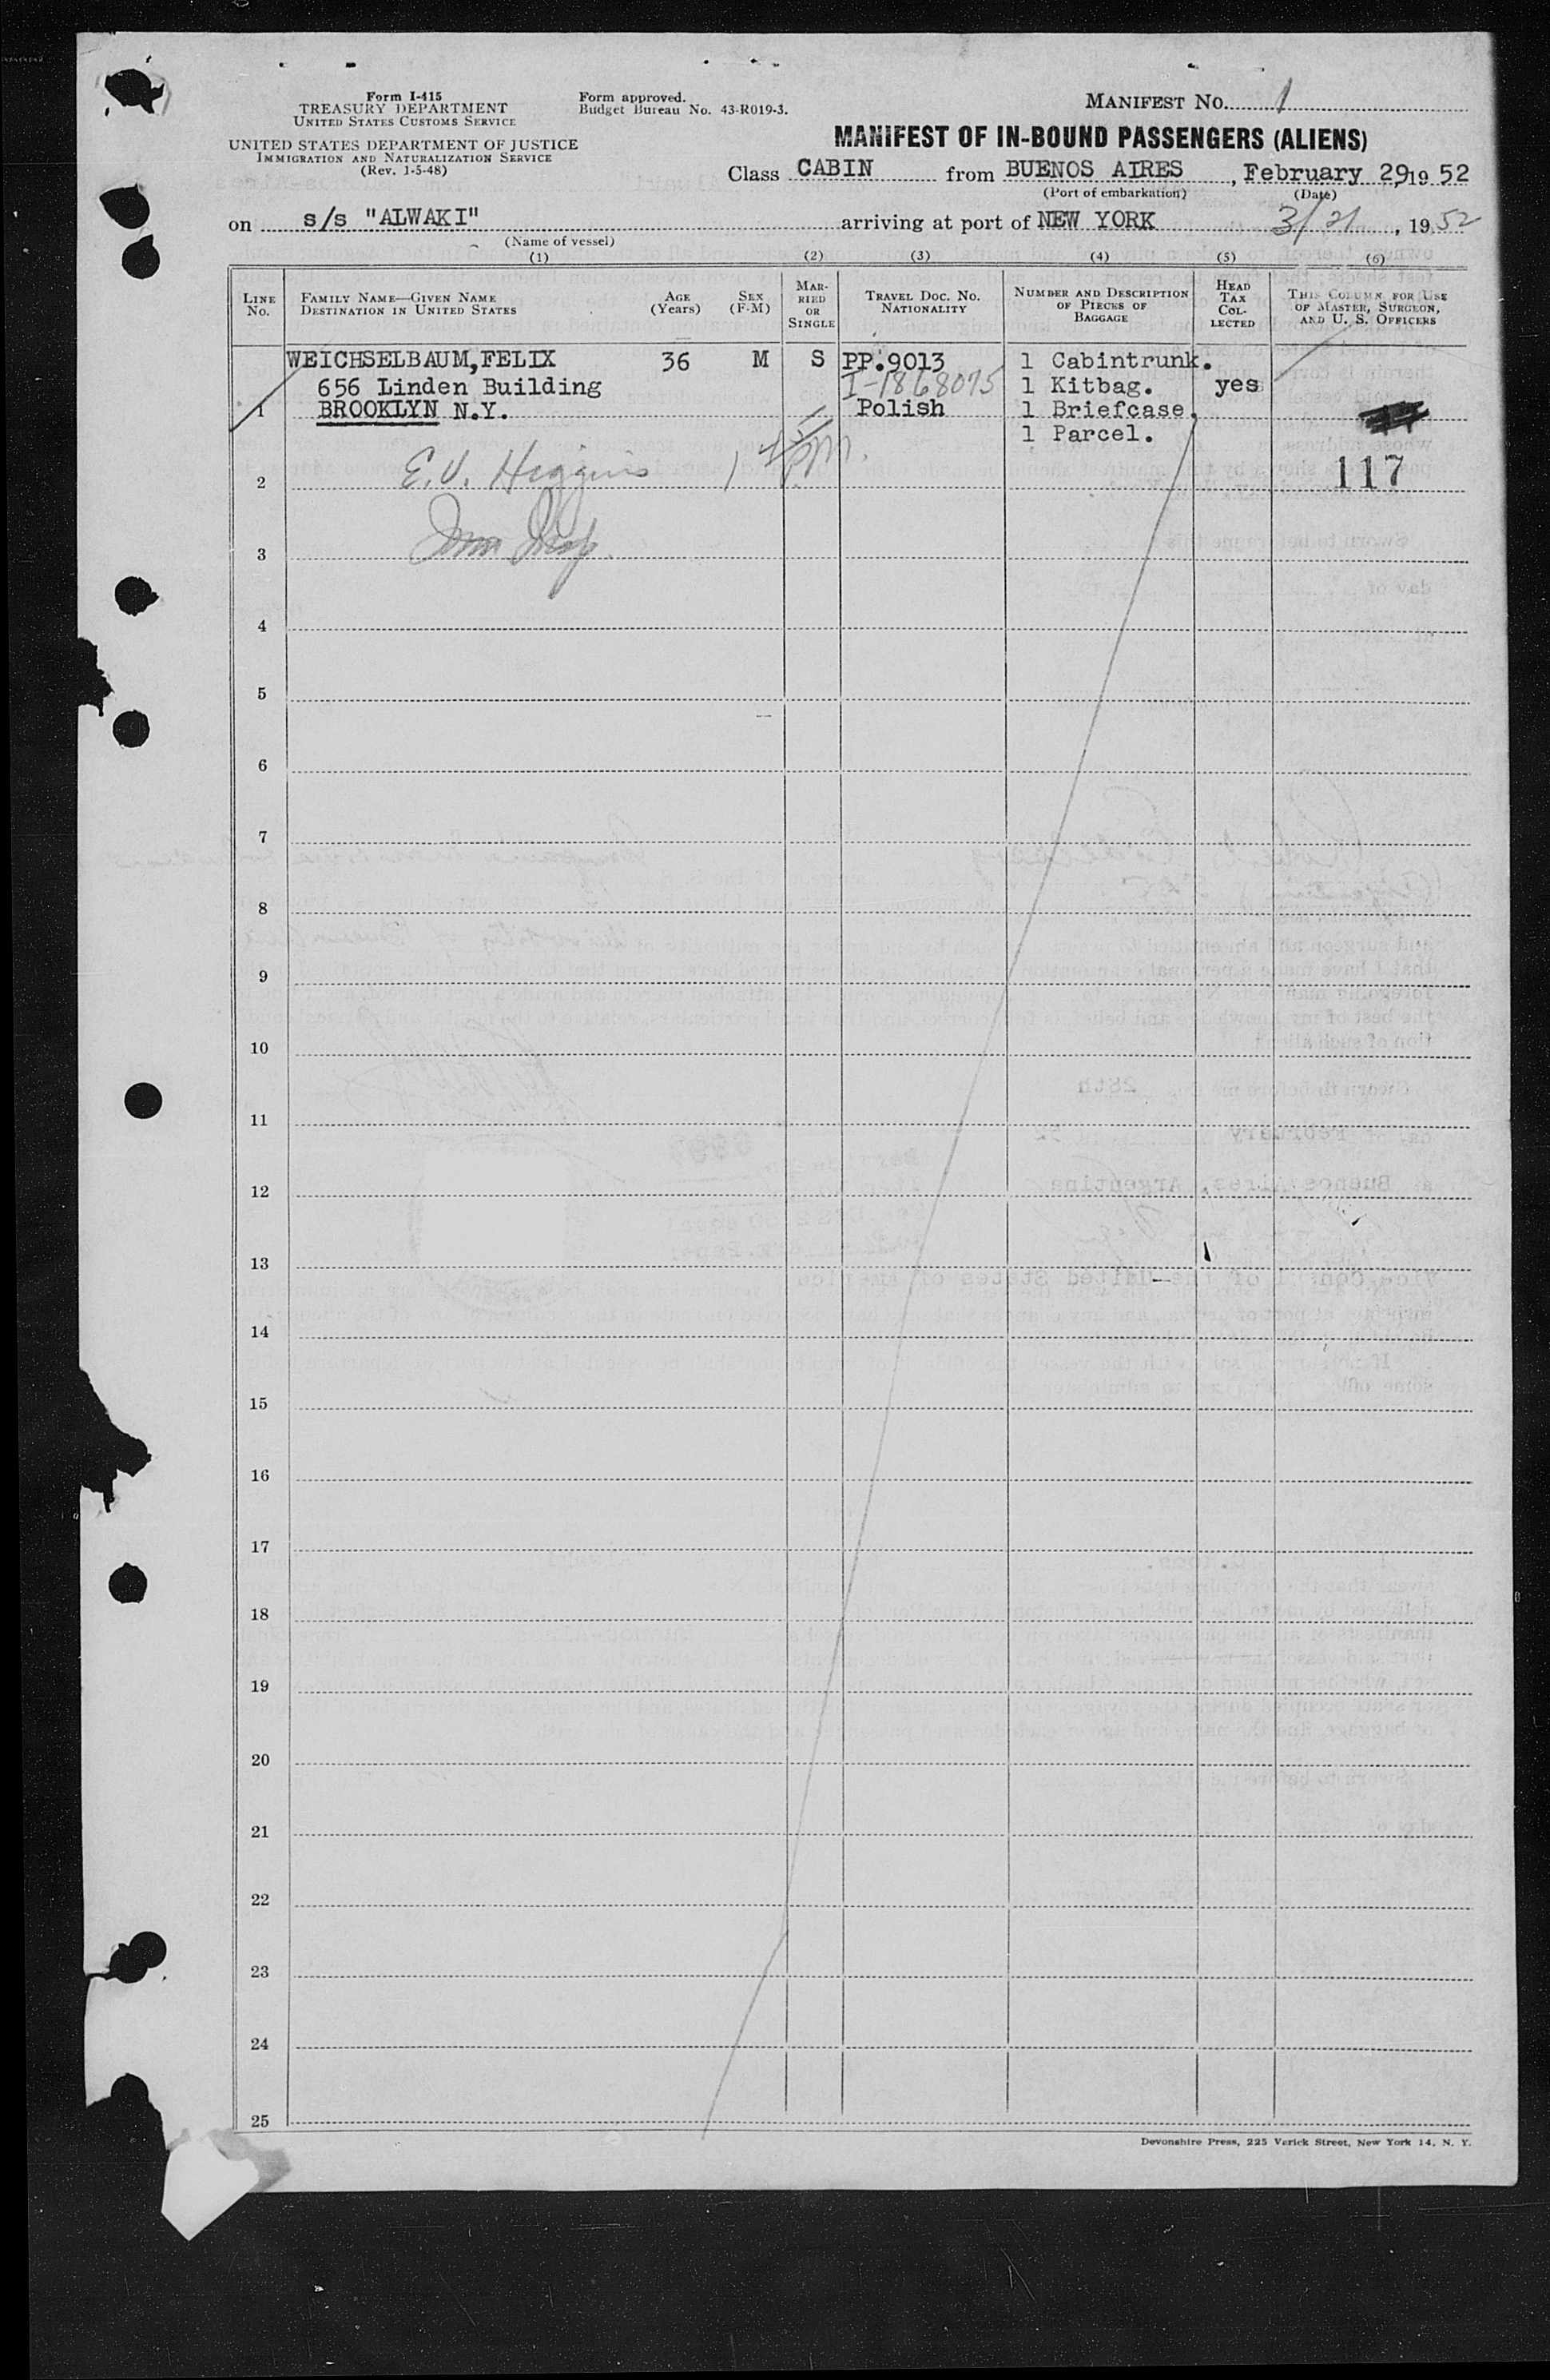 Form I-415
TREASURY DEPARTMENT
UNITED STATES CUSTOMS SERVICE
UNITED STATES DEPARTMENT OF JUSTICE
IMMIGRATION AND NATURALIZATION SERVICE
(Rev. 1-5-48)
Form approved.
Budget Bureau No. 43-R019-3.
MANIFEST NO. 1
MANIFEST OF IN-BOUND PASSENGERS (ALIENS)
Class CABIN from BUENOS AIRES, February 29, 19 52
(Port of embarkation) (Date)
on s/s "ALWAKI" arriving at port of NEW YORK 3/21, 19 52
(Name of vessel)
(1) (2) (3) (4) (5) (6)
LINE NO.
FAMILY NAME—GIVEN NAME
DESTINATION IN UNITED STATES
AGE (Years)
SEX (F-M)
MARRIED OR SINGLE
TRAVEL DOC. NO. NATIONALITY
NUMBER AND DESCRIPTION OF PIECES OF BAGGAGE
HEAD TAX COLLECTED
THIS COLUMN FOR USE OF MASTER, SURGEON, AND U. S. OFFICERS
WEICHSELBAUM, FELIX 36 M S PP.9013 1 Cabintrunk.
656 Linden Building I-1868075 1 Kitbag. yes
1 BROOKLYN N.Y. Polish 1 Briefcase.
1 Parcel.
2 E.V. Higgins 117
3 Imm Insp.
4
5
6
7
8
9
10
11
12
13
14
15
16
17
18
19
20
21
22
23
24
25
Devonshire Press, 225 Varick Street, New York 14, N. Y.